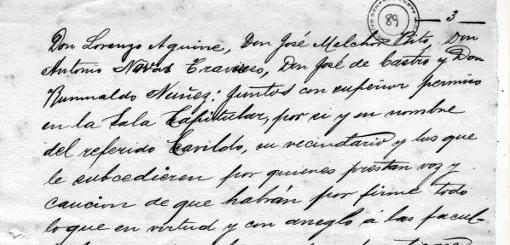 89
— 3 —
Don Lorenzo Aguirre, Don José Melchor Brito, Don
Antonio Navas Travieso, Don José de Castro y Don
Rumualdo Nuñez: Juntos con superior permiso
en la Sala Capitular, por si y en nombre
del referido Cavildo, su vecindario y los que
le subcedieren por quienes prestan voz y
caucion de que habrán por firme todo
lo que en virtud y con arreglo á las facul-